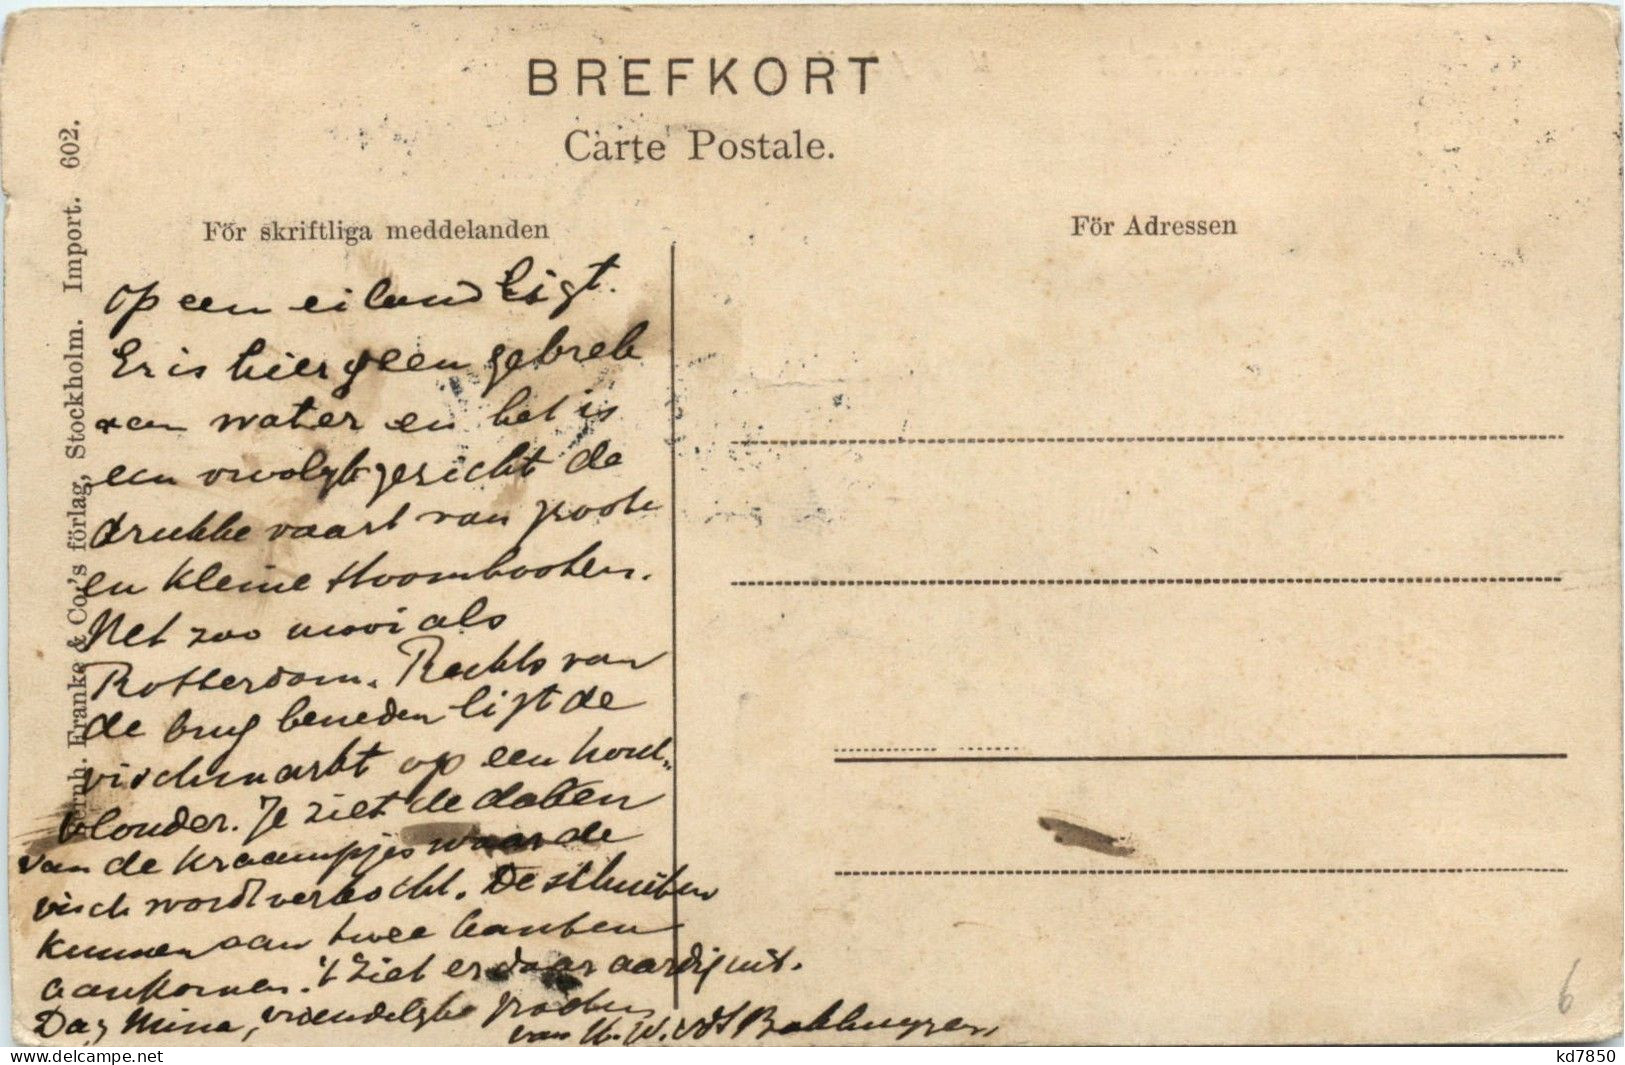 BREFKORT
Carte Postale.
För skriftliga meddelanden
För Adressen
Bernh. Franke & Co.'s förlag, Stockholm. Import. 602.
op een eiland ligt.
Er is hier geen gebrek
van water en het is
een vroolijk gezicht de
drukke vaart van groote
en kleine stoombooten.
Net zoo mooi als
Rotterdam. Rechts van
de brug beneden ligt de
vischmarkt op een hout-
vlonder. Je ziet de daken
van de kraampjes waar de
visch wordt verkocht. De schuiten
kunnen aan twee kanten
aankomen. 't Ziet er daar aardig uit.
Dag Mina, vriendelijke groeten
van
6
kd7850
www.delcampe.net